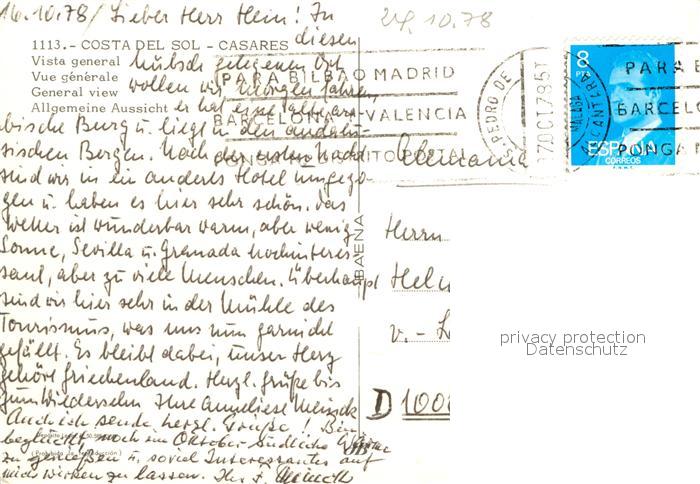 16.10.78/ Lieber Herr Hein! In
24.10.78
1113.- COSTA DEL SOL - CASARES diesen
Vista general hübsch gelegenen Ort
Vue générale wollen wir morgen fahren,
General view er hat eine alte, ara-
Allgemeine Aussicht
bische Burg u. liegt in den andalu-
sischen Bergen. Nach der ersten Nacht
sind wir in ein anderes Hotel umgezo-
gen u. haben es hier sehr schön. Das
Wetter ist wunderbar warm, aber wenig
Sonne, Sevilla u. Granada hochinteres-
sant, aber zu viele Menschen. Überhaupt
sind wir hier sehr in der Mühle des
Tourismus, was uns nun garnicht
gefällt. Es bleibt dabei, unser Herz
gehört Griechenland. Herzl. Grüße bis
zum Wiedersehn Ihre Anneliese
Auch ich sende herzl. Grüße! Bin
beglückt, noch im Oktober südliche
zu genießen u. soviel Interessantes auf
mich wirken zu lassen. Ihr
(Prohibida la reproducción)
BAENA
PARA BILBAO MADRID
BARCELONA-VALENCIA
PONGA DISTRITO POSTAL
S. PEDRO DE ALCANTARA
MALAGA
17 OCT 78
8 PTS
ESPAÑA
CORREOS
PARA B
BARCELO
PONGA
Alemania
Herrn
Hel
v. -
D 1000
privacy protection
Datenschutz